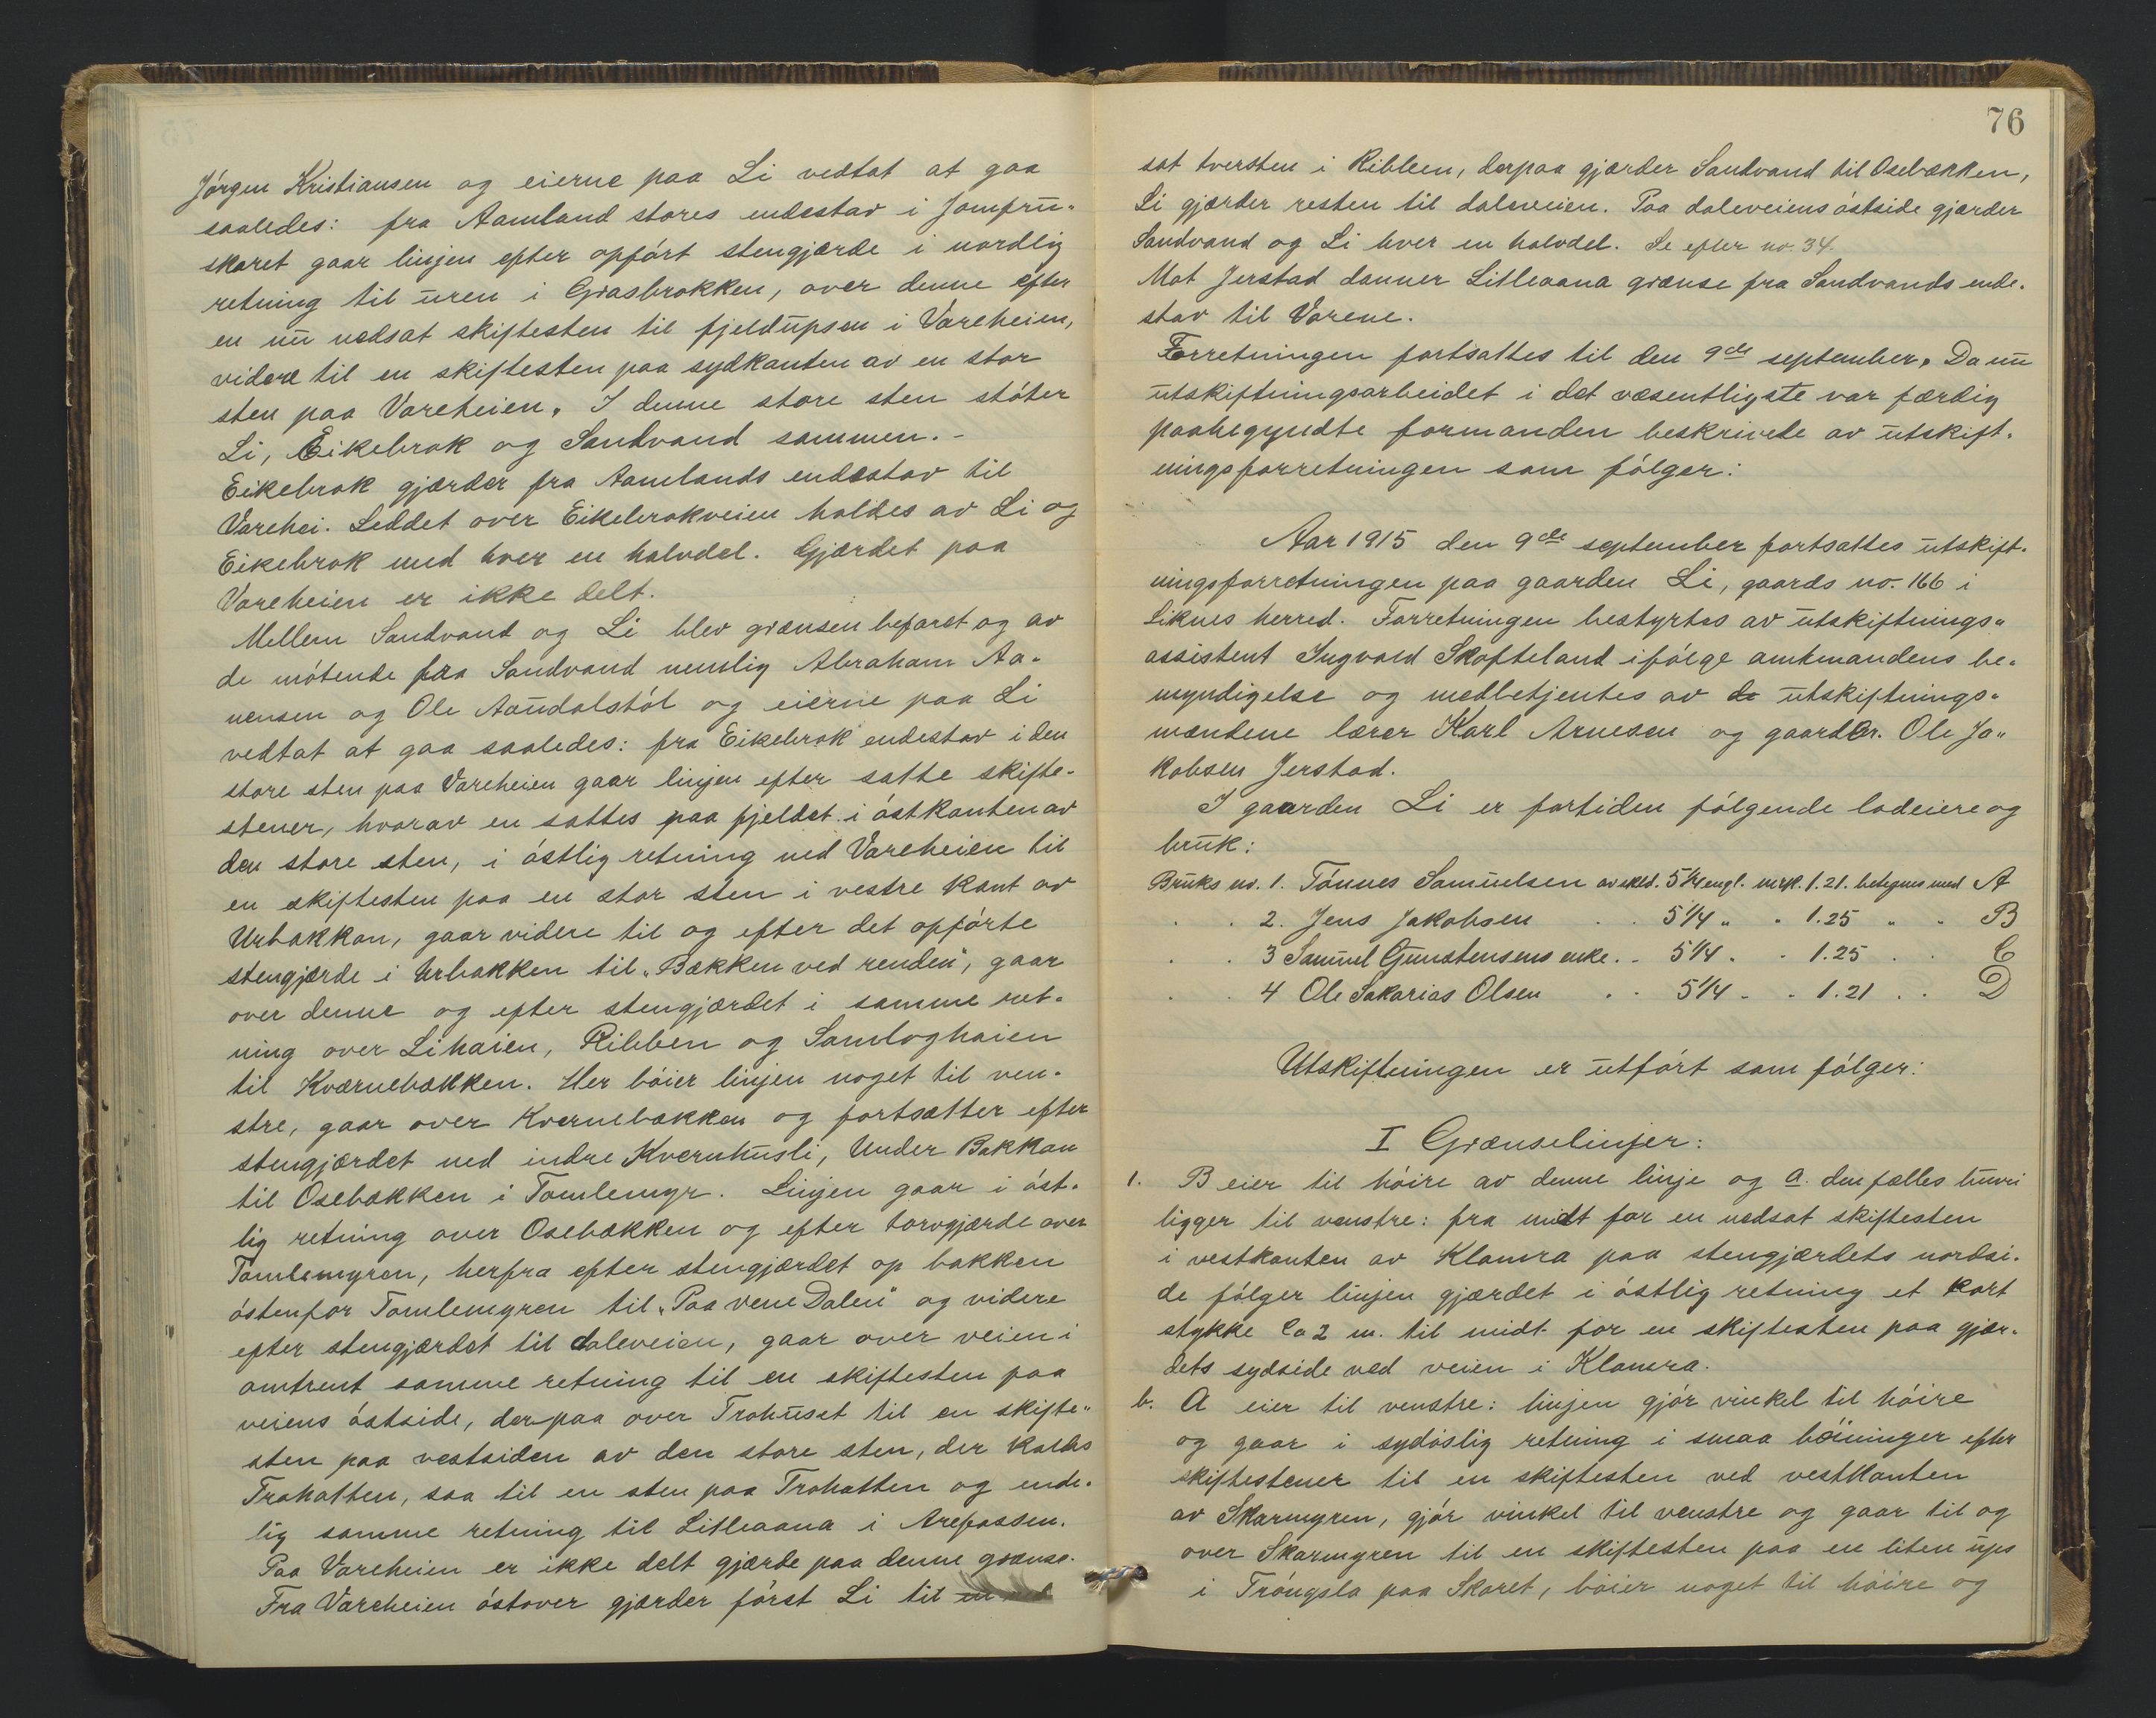 Jórgen Kristiansen og eierne paa Li vedtat at gaa
saaledes: fra Aamland stores endestav i Jomfru-
skaret gaar linjen efter opfórt stengjærde i nordlig
retning til uren i Grasbrokken, over denne efter
en nu nedsat skiftesten til fjeldupsen i Vareheien,
videre til en skiftesten paa sydkanten av en stor
sten paa Vareheien. I denne store sten stóter
Li, Eikebrok og Sandvand sammen.-
Eikebrok gjærder fra Aamlands endestav til
Varehei. Leddet over Eikebrokveien holdes av Li og
Eikebrok med hver en halvdel. Gjærdet paa
Vareheien er ikke delt.
Mellem Sandvand og Li blev grænsen befaret og av
de mótende fra Sandvand nemlig Abraham Aa-
nensen og Ole Aaudalstól og eierne paa Li
vedtat at gaa saaledes: fra Eikebrok endestav i den
store sten paa Vareheien gaar linjen efter satte skifte-
stener, hvorav en sattes paa fjeldet i óstkanten av
den store sten, i óstlig retning ned Vareheien til
en skiftesten paa en stor sten i vestre kant av
Urbakkan, gaar videre til og efter det opfórte
stengjærde i Urbakken til „Bækken ved renden", gaar
over denne og efter stengjærdet i samme ret-
ning over Lihaien, Ribben og Samloghaien
til Kværnebækken. Her bóier linjen noget til ven-
stre, gaar over Kvernebækken og fortsætter efter
stengjærdet ned indre Kvernhusli, Under Bakkan
til Osebækken i Tomlemyr. Linjen gaar i óst-
lig retning over Osebækken og efter torvgjærde over
Tomlemyren, herfra efter stengjærdet op bakken
óstenfor Tomlemyren til „Paa vene Dalen" og videre
efter stengjærdet til daleveien, gaar over veien i
omtrent samme retning til en skiftesten paa
veiens óstside, derpaa over Trohuset til en skifte-
sten paa vestsiden av den store sten, der kaldes
Trohatten, saa til en sten paa Trohatten og ende-
lig samme retning til Litleaana i Arefossen.
Paa Vareheien er ikke delt gjærde paa denne grænse.
Fra Vareheien óstover gjærder fórst Li til
76
sat tversten i Ribben, derpaa gjærder Sandvand til Osebækken,
Li gjærder resten til daleveien. Paa daleveiens óstside gjærder
Sandvand og Li hver en halvdel. Se efter no. 34.
Mot Jerstad danner Litleaana grænse fra Sandvands ende-
stav til Varene.
Forretningen fortsattes til den 9de september. Da nu
utskiftningsarbeidet i det væsentligste var færdig
paabegyndte formanden beskrivele av utskift-
ningsforretningen som fólger:
Aar 1915 den 9de september fortsattes utskift-
ningsforretningen paa gaarden Li, gaards no. 166 i
Liknes herred. Forretningen bestyrtes av utskiftnings-
assistent Ingvald Skofteland ifólge amtmandens be-
myndigelse og medbetjentes av de utskiftnings-
mændene lærer Karl Arnesen og gaardbr. Ole Ja-
kobsen Jerstad.
I gaarden Li er fortiden fólgende lodeiere og
bruk:
Bruks no. 1. Tónnes Samuelsen av skld. 5 1/4 engl. mrk. 1.21. betegnes med A
. . 2. Jens Jakobsen . . 5 1/4 " . 1.25 " . B
. . 3 Samuel Gunstensens enke . . 5 1/4 . . 1.25 . . C
. . 4 Ole Sakarias Olsen . . 5 1/4 . . 1.21 . . D
Utskiftningen er utfórt som fólger:
I Grænselinjer:
1. B eier til hóire av denne linje og a. den fælles
ligger til venstre: fra midt for en nedsat skiftesten
i vestkanten av Klamra paa stengjærdets nordsi-
de fólger linjen gjærdet i óstlig retning et kort
stykke ca 2 m. til midt for en skiftesten paa gjær-
dets sydside ved veien i Klamra.
b. A eier til venstre: linjen gjór vinkel til hóire
og gaar i sydóslig retning i smaa bóininger efter
skiftestener til en skiftesten ved vestkanten
av Skarmyren, gjór vinkel til venstre og gaar til og
over Skarmyren til en skiftesten paa en liten ups
i Tróngsla paa Skaret, bóier noget til hóire og